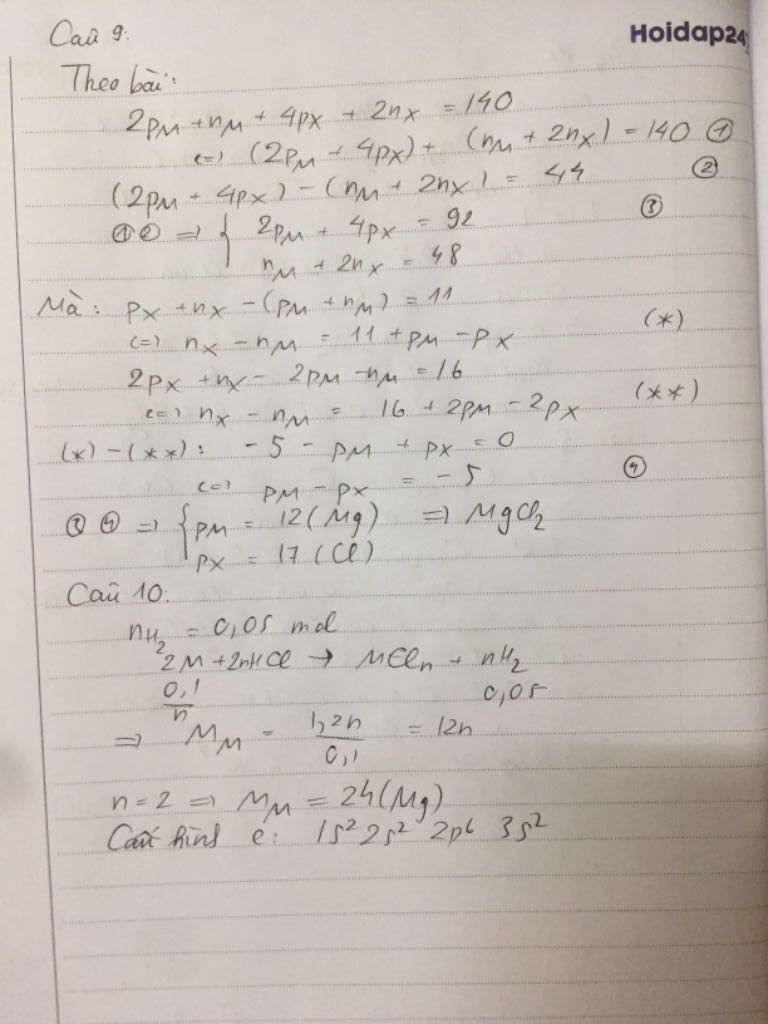 Câu 9:
Hoidap247
Theo bài:
2pM + nM + 4pX + 2nX = 140
<=> (2pM + 4pX) + (nM + 2nX) = 140 ①
(2pM + 4pX) - (nM + 2nX) = 44 ②
① ② => { 2pM + 4pX = 92 ③
nM + 2nX = 48
Mà: pX + nX - (pM + nM) = 11
<=> nX - nM = 11 + pM - pX (*)
2pX + nX - 2pM - nM = 16
<=> nX - nM = 16 + 2pM - 2pX (**)
(*) - (**): -5 - pM + pX = 0
<=> pM - pX = -5 ④
③ ④ => { pM = 12 (Mg) => MgCl2
pX = 17 (Cl)
Câu 10:
nH2 = 0,05 mol
2M + 2nHCl → MCln + nH2
0,1/n 0,05
=> MM = 1,2n/0,1 = 12n
n = 2 => MM = 24 (Mg)
Cấu hình e: 1s² 2s² 2p⁶ 3s²